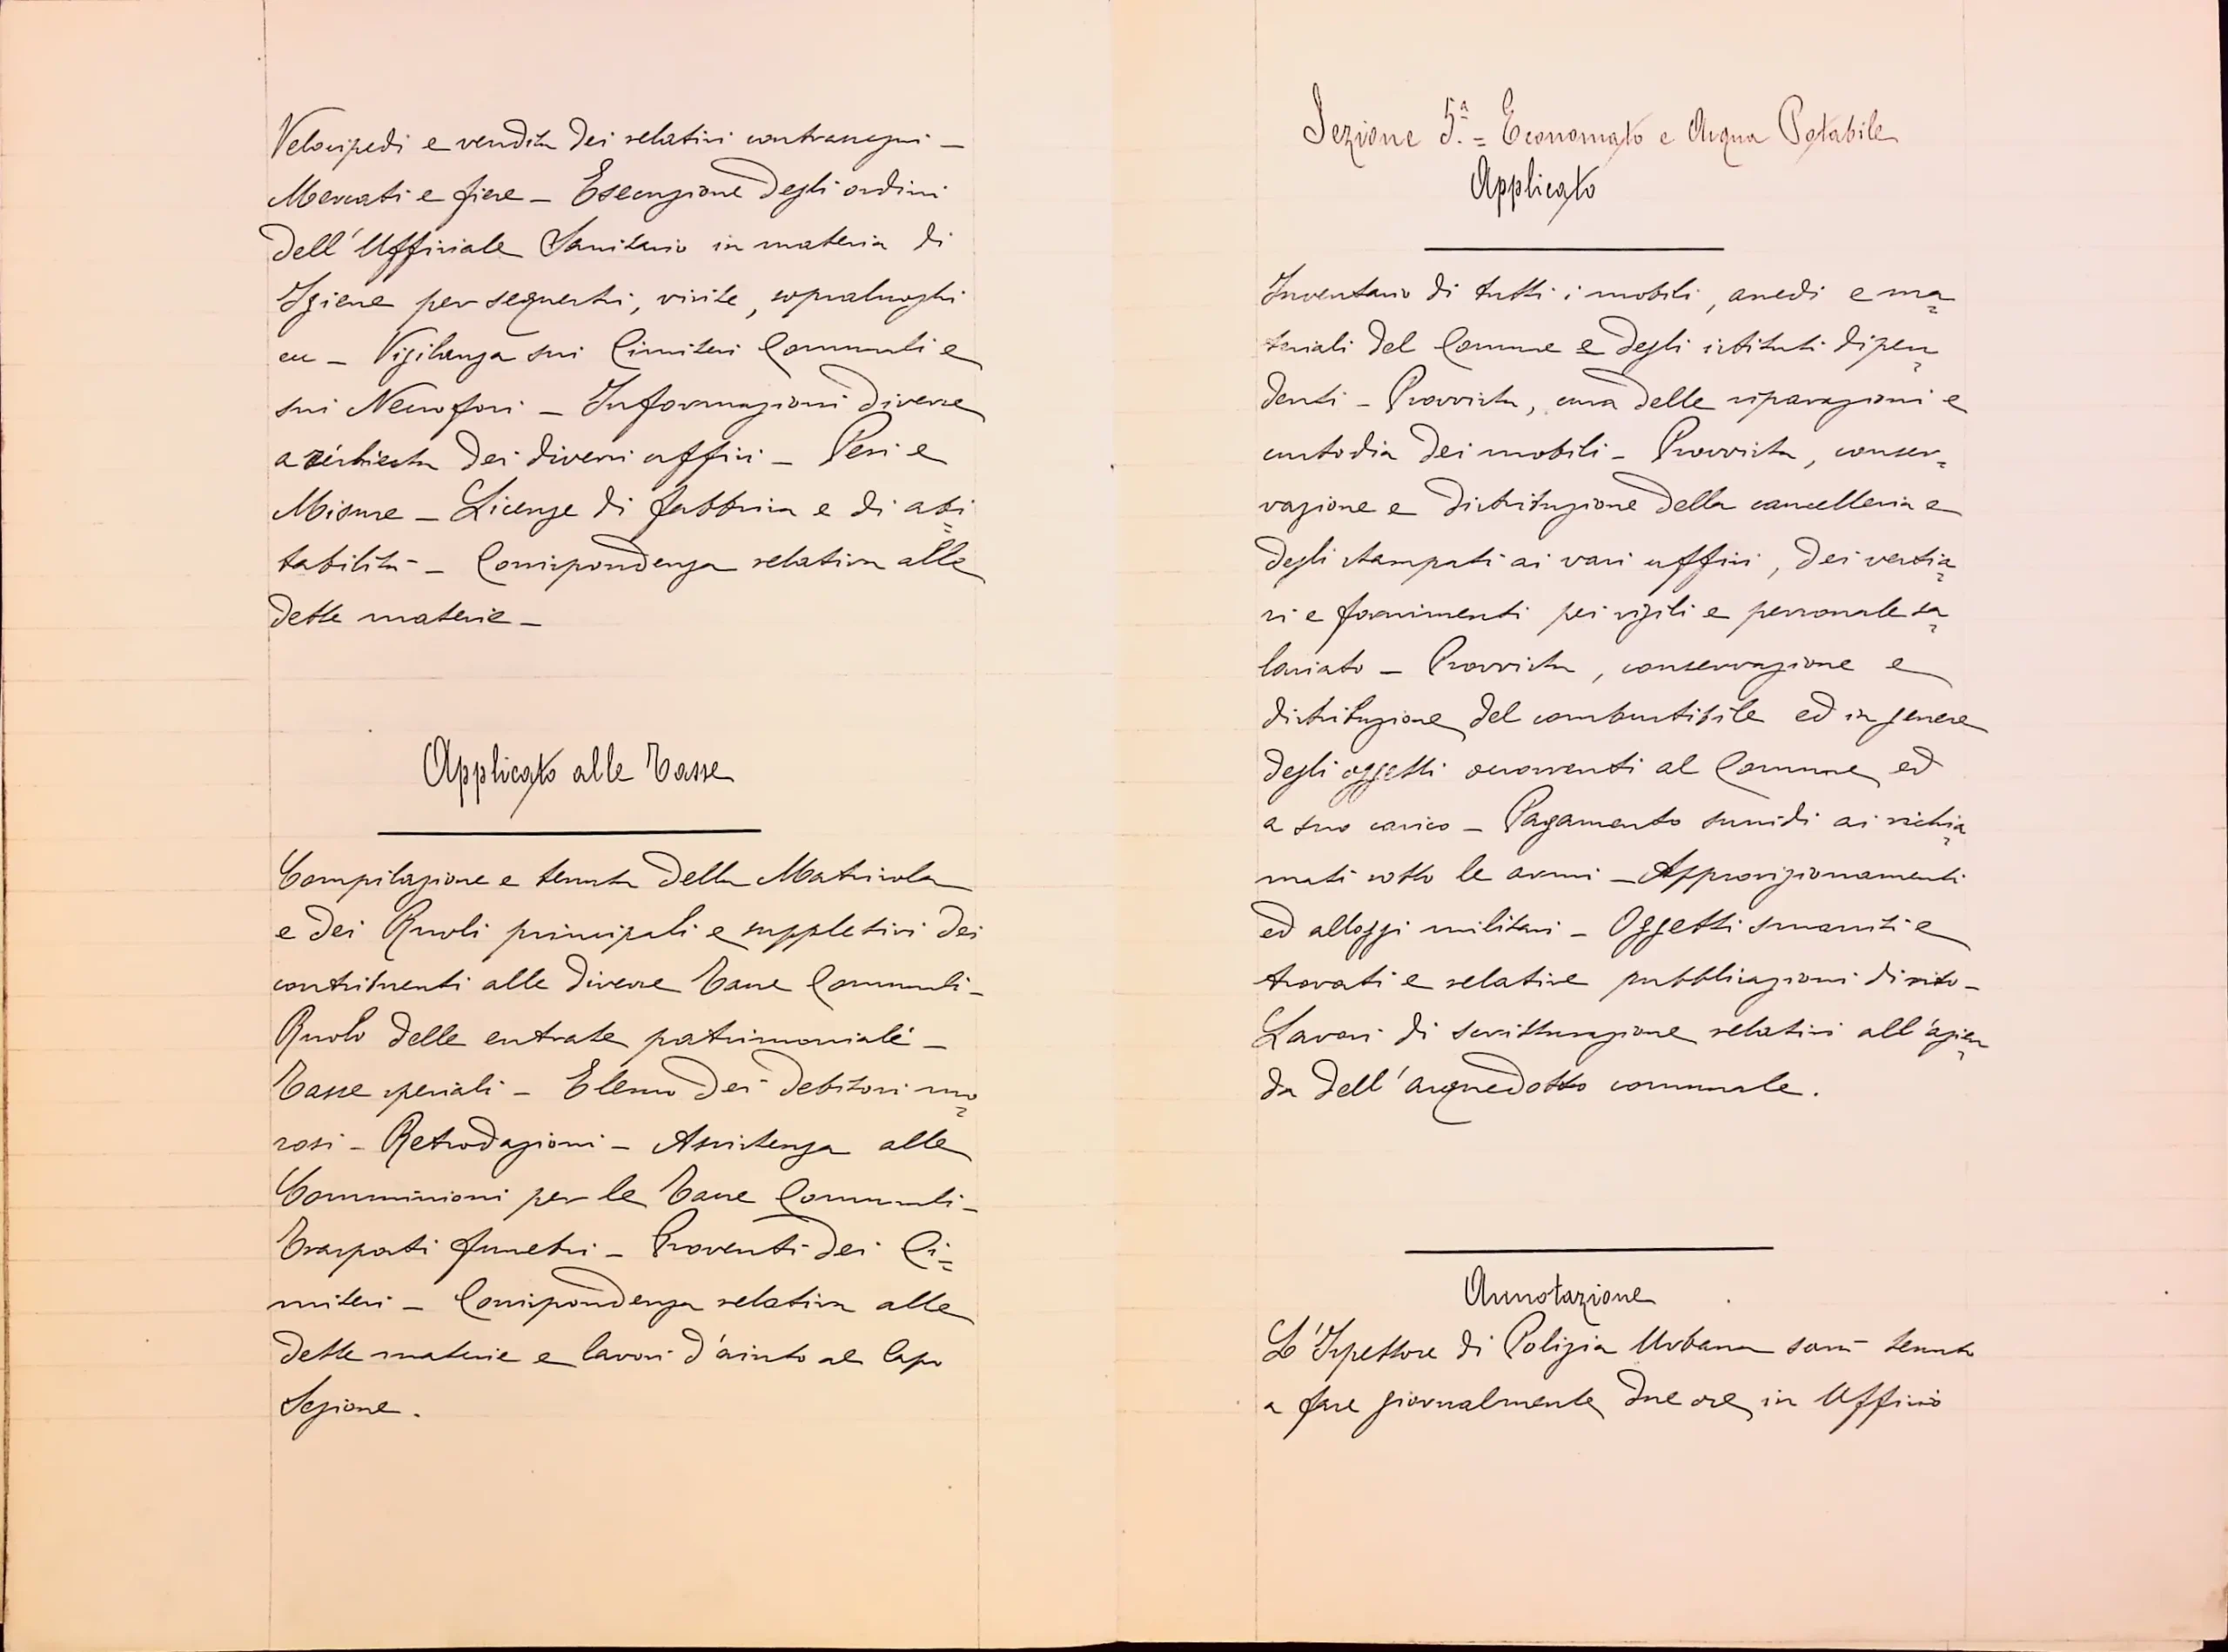 Velocipedi e vendita dei relativi contrassegni –
Mercati e fiere – Esecuzione degli ordini
dell'Ufficiale Sanitario in materia di
Igiene per sequestri, visite, sopraluoghi
ecc – Vigilanza sui Cimiteri Comunali e
sui Necrofori – Informazioni diverse
a richiesta dei diversi uffici – Pesi e
Misure – Licenze di fabbrica e di abi=
tabilità – Corrispondenza relativa alle
dette materie –
Applicato alle Tasse
Compilazione e tenuta della Matricola
e dei Ruoli principali e suppletivi dei
contribuenti alle diverse Tasse Comunali –
Ruolo delle entrate patrimoniali –
Tasse speciali – Elenco dei debitori mo=
rosi – Retrodazioni – Assistenza alle
Commissioni per le Tasse Comunali –
Trasporti funebri – Proventi dei Ci=
miteri – Corrispondenza relativa alle
dette materie e lavori d'aiuto al Capo
Sezione.
Sezione 5ª. = Economato e Acqua Potabile
Applicato
Inventario di tutti i mobili, arredi e ma=
teriali del Comune e degli istituti dipen=
denti – Provvista, cura delle riparazioni e
custodia dei mobili – Provvista, conser=
vazione e distribuzione della cancelleria e
degli stampati ai vari uffici, dei vestia=
ri e fornimenti pei vigili e personale sa=
lariato – Provvista, conservazione e
distribuzione del combustibile ed in genere
degli oggetti occorrenti al Comune ed
a suo carico – Pagamento sussidi ai richia=
mati sotto le armi – Approvigionamenti
ed alloggi militari – Oggetti smarriti e
trovati e relative pubblicazioni di rito –
Lavori di scritturazione relativi all'azien=
da dell'acquedotto comunale.
Annotazione
L'Ispettore di Polizia Urbana sarà tenuto
a fare giornalmente due ore in Ufficio